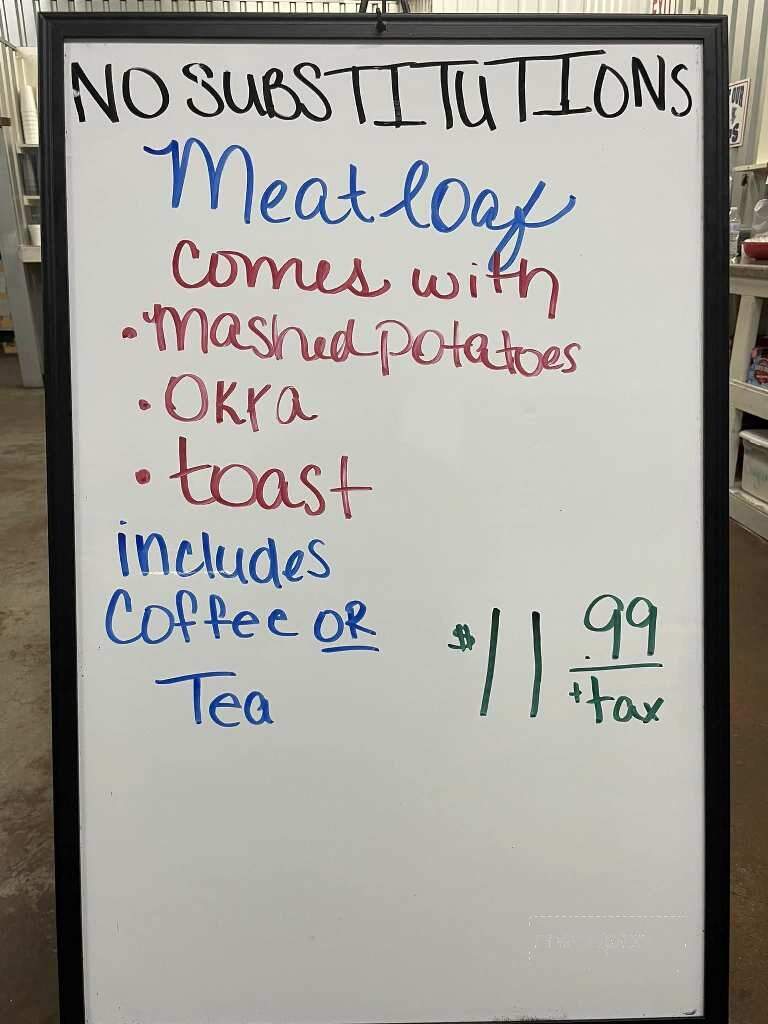 NO SUBSTITUTIONS
Meatloaf
comes with
• mashed potatoes
• OKra
• toast
includes
Coffee OR
Tea
$11.99
+tax